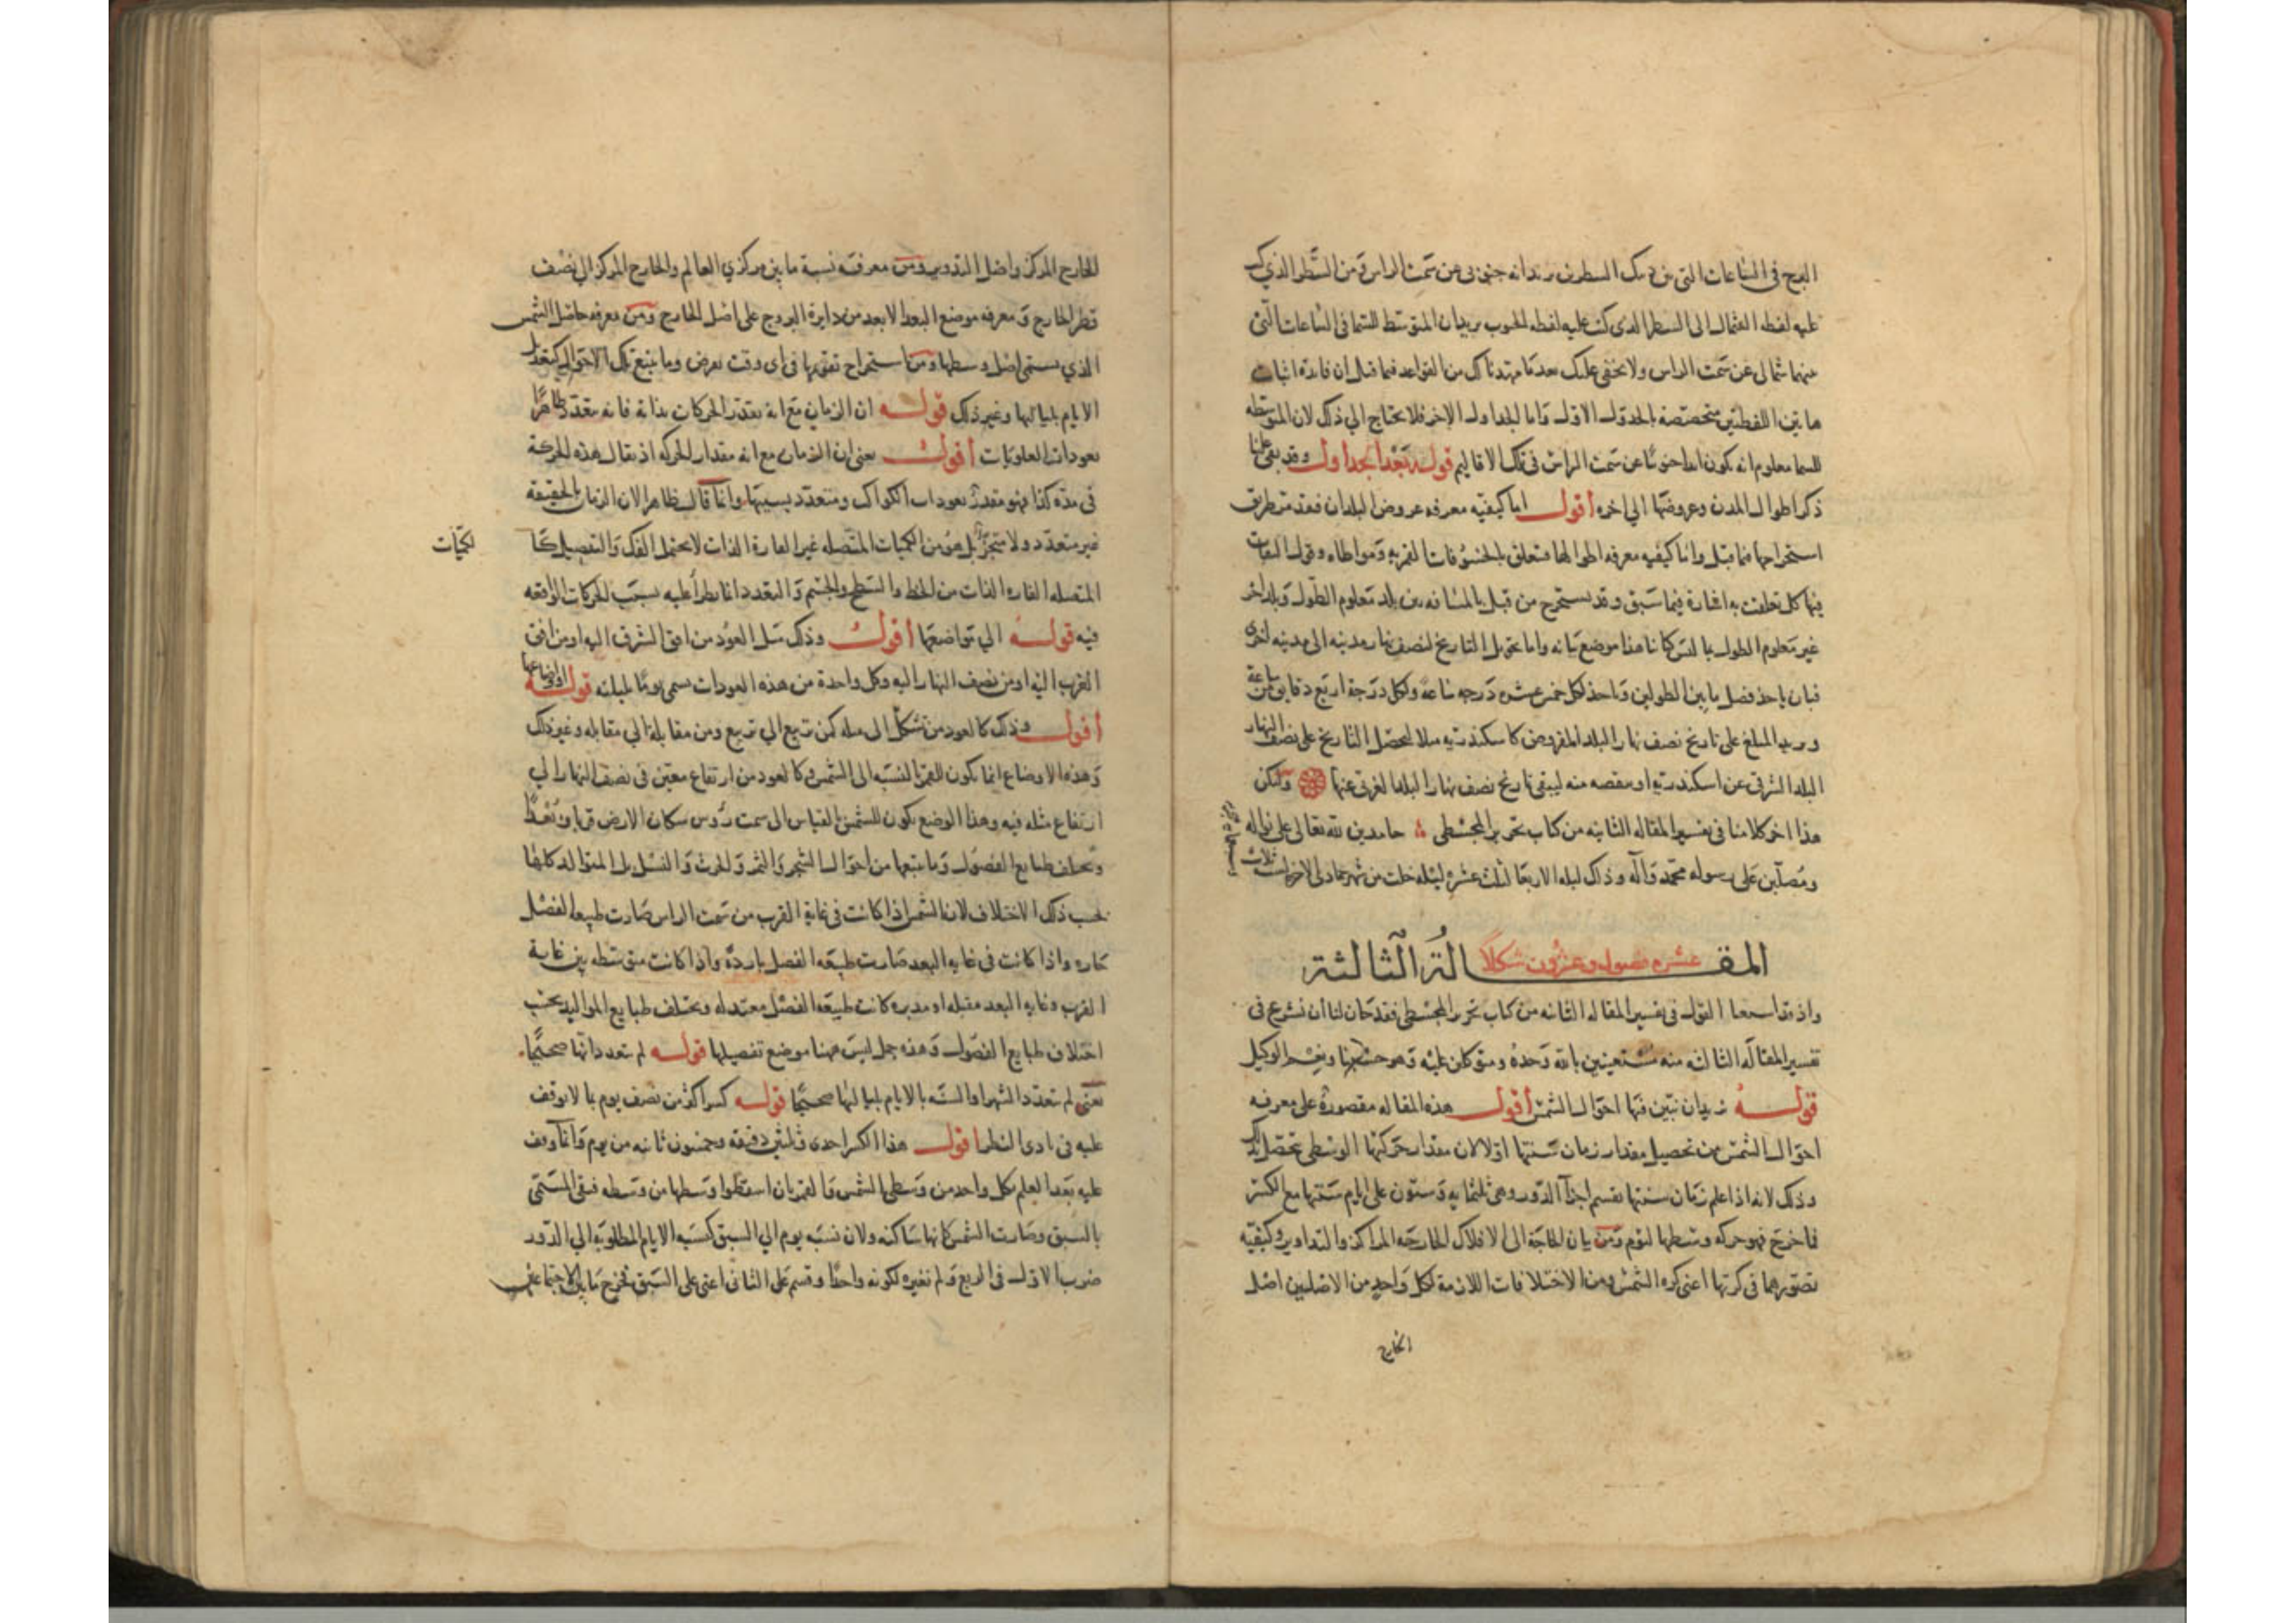 البرج في الساعات التي بين ذينك السطرين يريد انه جنوبي عن سمت الراس ومن السطر الذي كتب
عليه لفظه الشمال الى السطر الذي كتب عليه لفظه الجنوب يريد ان المتوسط للسما في الساعات التي
بينهما شمالي عن سمت الراس ولا يخفى عليك بعد ما مهدنا لك من القواعد فيما قبل ان فائدة اثبات
هاتين اللفظتين مختصة بالجدول الاول واما الجداول الاخر فلا يحتاج الي ذلك لان المتوسطه
للسما معلوم انه يكون ابدا جنوبيا عن سمت الراس في تلك الاقاليم قوله بعد الجداول وقد بقي علينا
ذكر اطوال المدن وعروضها الي اخره أقول اما كيفيه معرفه عروض البلدان فقد مر طريق
استخراجها فيما قبل واما كيفيه معرفه اطوالها فتتعلق بالخسوفات القمريه
فيما سبق وقد يستخرج من قبل بالمسافه بين بلد معلوم الطول وبلد اخر
غير معلوم الطول هذا موضع بيانه واما تحويل التاريخ لنصف نهار مدينه الى مدينه اخرى
فبان ياخذ فضل ما بين الطولين وياخذ لكل خمس عشره درجه ساعة ولكل درجة اربع دقايق من ساعة
ويزيد المبلغ على تاريخ نصف نهار البلد المفروض كاسكندريه مثلا ليحصل التاريخ على نصف النهار
البلد الشرقي عن اسكندريه او ينقصه منه ليبقى تاريخ نصف نهار البلد الغربي عنها وليكن
هذا اخر كلامنا في تفسير المقاله الثانيه من كتاب تحرير المجسطي حامدين لله تعالى على نواله
ومصلين على رسوله محمد وآله وذلك ليله الاربعا لثلث عشره ليله خلت من شهر جمادى الاخر
المقالة الثالثة
عشره فصول وعشرون شكلا
واذ قد اسمعنا القول في تفسير المقاله الثانيه من كتاب تحرير المجسطي فقد حان لنا أن نشرع في
تفسير المقاله الثالثه منه مستعينين بالله وحده ومتوكلين عليه وهو حسبنا ونعم الوكيل
قوله نريد ان نبين فيها احوال الشمس أقول هذه المقاله مقصورة على معرفه
احوال الشمس من تحصيل مقدار زمان سنتها اولا لان مقدار حركتها الوسطى تحصل بذلك
وذلك لانه اذا علم زمان سنتها نقسم اجزآ الدور وهي ثلثمايه وستون على ايام سنتها مع الكسر
فما خرج فهو حركه وسطها ليوم ومن بيان الحاجة الى الافلاك الخارجه المراكز والتداوير وكيفيه
تصورهما في كرتها اعني كره الشمس ومن الاختلافات اللازمة لكل واحد من الاصلين اصل
الخارج
للخارج المركز واصل التدوير ومن معرفه نسبة ما بين مركزي العالم والخارج المركز الي نصف
قطر الخارج ومعرفه موضع البعد الابعد من دايرة البروج على اصل الخارج ومن معرفه حاصل الشمس
الذي يسمى اصل وسطها ومن استخراج تقويمها في اي وقت يفرض وما يتبع تلك الاحوال كتعديل
الايام بلياليها وغير ذلك قوله ان الزمان مع انه يقدر الحركات بذاته فانه يتعدد ظاهرًا
بعودات العلويات أقول يعني ان الزمان مع انه مقدار الحركه اذ يقال هذه الحركة
في مده كذا فهو مقدر بعودات الكواكب ومتعدد بسببها وانما قال ظاهرا لان الزمان بالحقيقه
غير متعدد ولا متجزئ بل هو من الكميات المتصله غير القارة الذات لا يحتمل الفك والتفصيل كما
لكميات
المتصله القاره الذات من الخط والسطح والجسم والتعدد انما يطرأ عليه بسبب الحركات الواقعه
فيه قوله الي مواضعها أقول وذلك مثل العود من افق الشرق اليه او من افق
الغرب اليه او من نصف النهار اليه وكل واحدة من هذه العودات يسمى يوما بليلته قوله او اوضاعها
أقول وذلك كالعود من تشكل الى مثله كمن تربيع الي تربيع ومن مقابلة الي مقابله وغير ذلك
وهذه الاوضاع انما يكون للقمر بالنسبه الى الشمس وكالعود من ارتفاع معين في نصف النهار الي
ارتفاع مثله فيه وهذا الوضع يكون للشمس بالقياس الى سمت رؤس سكان الارض قربا وبعدا
وتختلف طبايع الفصول وما يتبعها من احوال الشجر والثمر والحرث والنسل بل المتوالد كلها
بحسب ذلك الاختلاف لان الشمس اذا كانت في غاية القرب من سمت الراس صارت طبيعه الفصل
حاره واذا كانت في غايه البعد صارت طبيعه الفصل بارده واذا كانت متوسطه بين غاية
القرب وغايه البعد مقبله او مدبره كانت طبيعه الفصل معتدله وتختلف طبايع المواليد بحسب
اختلاف طبايع الفصول وهذه جمل ليس ههنا موضع تفصيلها قوله لم تعدداتها صحيحا
يعني لم يتعدد الشهر او السنه بالايام بلياليها صحيحا قوله كسرا اكثر من نصف يوم بما لا يوقف
عليه في بادي النظر أقول هذا الكسر احدى وثلثون دقيقه وخمسون ثانيه من يوم وانما وقف
عليه بعد العلم بكل واحد من وسطي الشمس والقمر بان اسقطوا وسطها من وسطه فبقي المسمى
بالسبق وصارت الشمس كانها ساكنه ولان نسبه يوم الي السبق كنسبه الايام المطلوبه الي الدور
ضرب الاول في الرابع ولم نغيره لكونه واحدًا وقسم على الثاني اعني على السبق ليخرج ما بين الاجتماعين